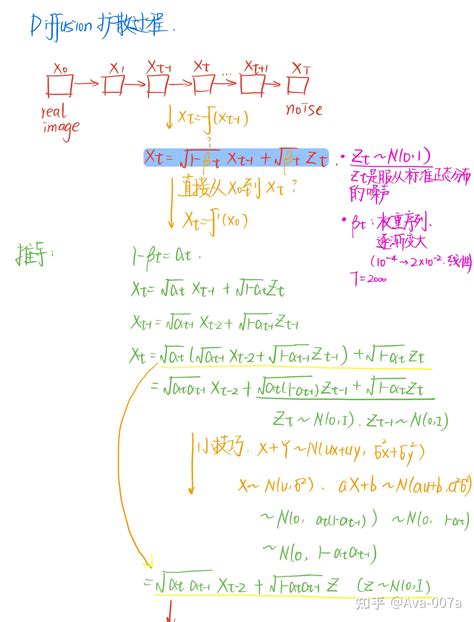 Diffusion 扩散过程
X₀ X₁ Xt-1 Xt ... Xt+1 XT
real image
noise
Xt=f(Xt-1)
?
Xt=√1-βt Xt-1+√βt Zt
直接从X₀到Xt?
Xt=f'(X₀)
• Zt~N(0,1)
Zt是服从标准正态分布
的噪声
• βt: 权重序列
逐渐变大
(10⁻⁴→2×10⁻², 线性)
T=2000
推导:
1-βt=αt.
Xt=√αt Xt-1+√1-αt Zt
Xt-1=√αt-1 Xt-2+√1-αt-1 Zt-1
Xt=√αt(√αt-1 Xt-2+√1-αt-1 Zt-1)+√1-αt Zt
=√αtαt-1 Xt-2+√αt(1-αt-1) Zt-1+√1-αt Zt
Zt~N(0,I). Zt-1~N(0,I)
小技巧. X+Y~N(ux+uy, б²x+б²y)
X~N(u,б²). aX+b~N(au+b, a²б²)
~N(0, αt(1-αt-1)) ~N(0, 1-αt)
~N(0, 1-αtαt-1)
=√αtαt-1 Xt-2+√1-αtαt-1 Z (Z~N(0,I)
知乎 @Ava-007a